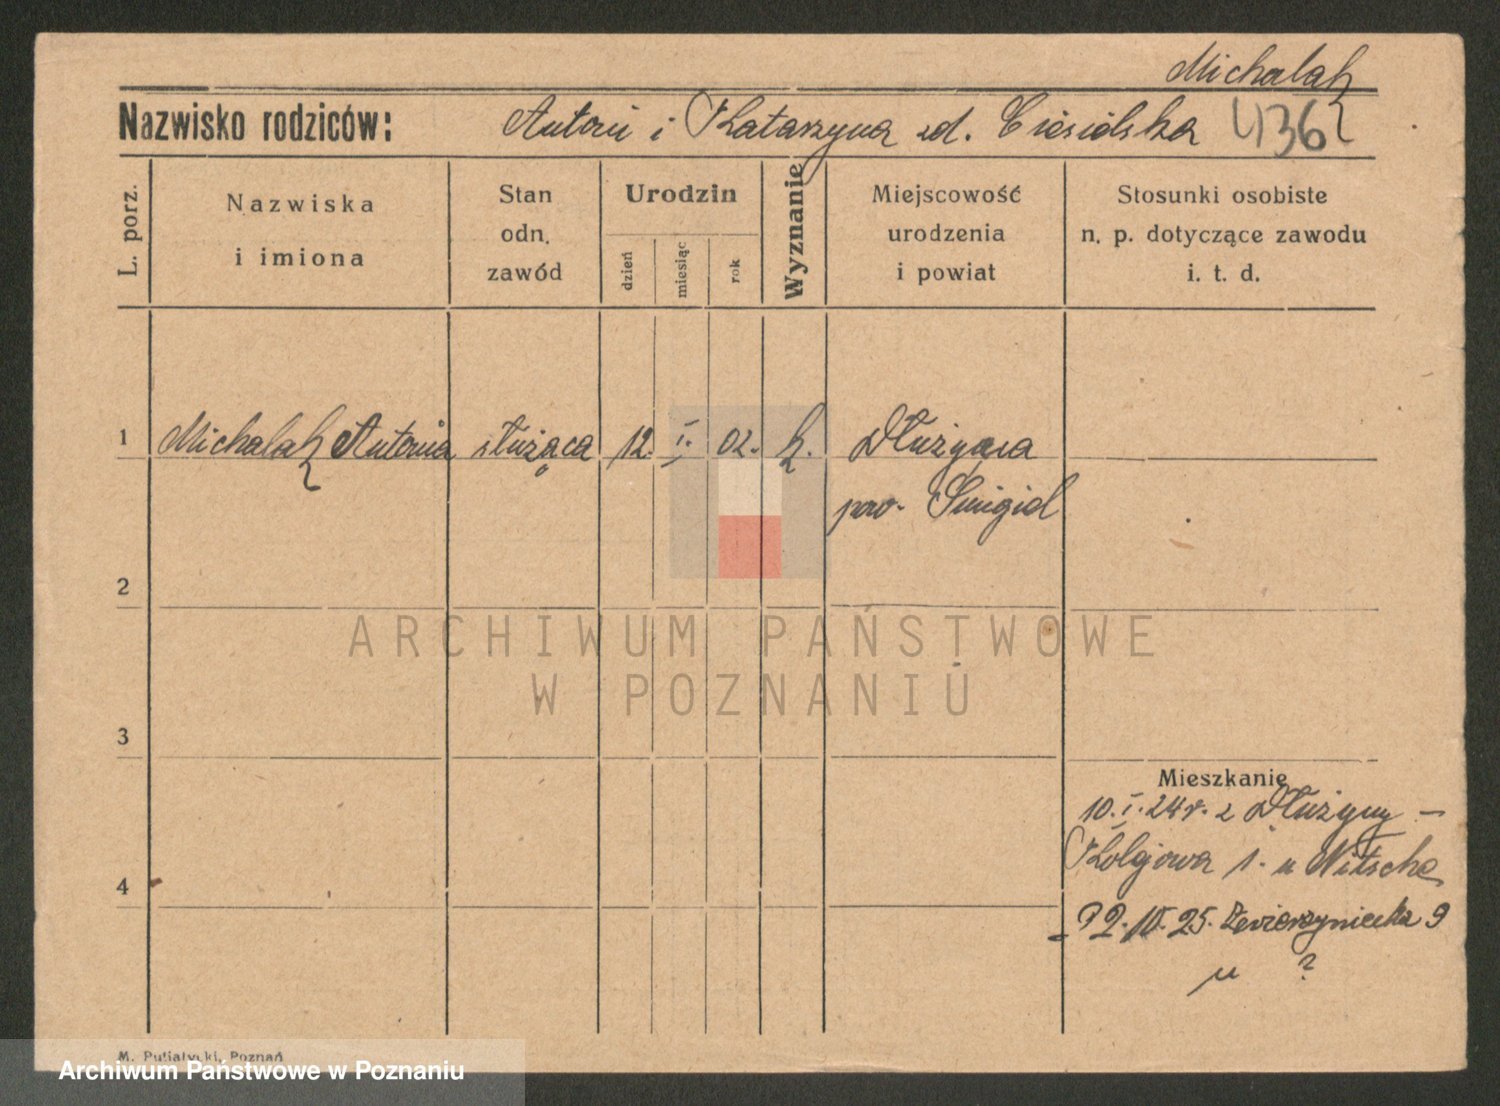 Michalak
Nazwisko rodziców: Antoni i Katarzyna zd. Ciesielska 436
L. porz.
Nazwiska
i imiona
Stan
odn.
zawód
Urodzin
dzień
miesiąc
rok
Wyznanie
Miejscowość
urodzenia
i powiat
Stosunki osobiste
n. p. dotyczące zawodu
i. t. d.
1 Michalak Antonia służąca 12. I. 02. k. Dłużyna
pow. Śmigiel
2
ARCHIWUM PAŃSTWOWE
W POZNANIU
3
Mieszkanie
10. I. 24 r. z Dłużyny –
Kolejowa 1. u Nitsche
4
22. 10. 25. Zwierzyniecka 9
u ?
M. Putiatycki, Poznań
Archiwum Państwowe w Poznaniu